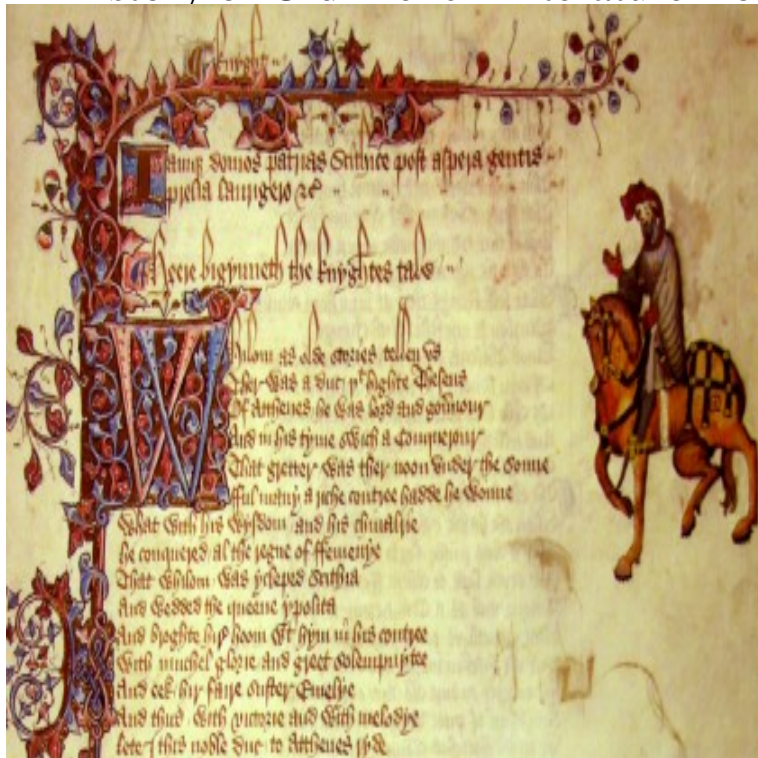 Knyght
Iamq̷ domos patrias Scithice post aspera gentis
prelia laurigero &c
Heere bigynneth the knyghtes tale
Whilom as olde stories tellen vs
Ther was a duc þt highte Theseus
Of Atthenes he was lord and gouernour
And in his tyme swich a Conquerour
That gretter was ther noon vnder the sonne
fful many a riche contree hadde he wonne
What with his wysdom and his chiualrie
he conquered al the regne of ffemenye
That whilom was ycleped Scithia
And wedded the queene ypolita
And broghte hir hoom wt hym in his contree
With muchel glorie and greet solempnytee
And eek hir faire suster Emelye
And thus with victorie and with melodye
lete I this noble duc to Atthenes ryde